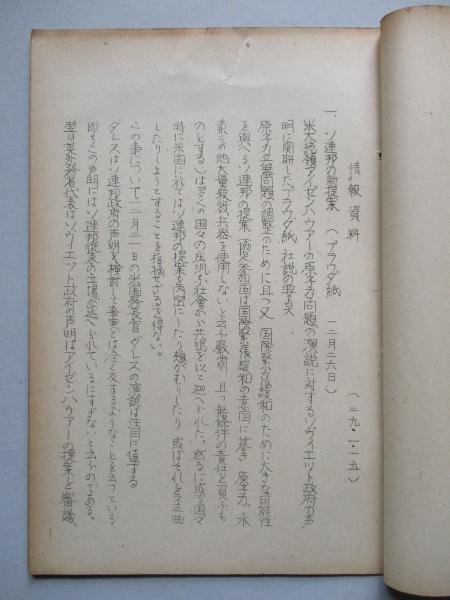 情報資料
(二九・一・一五)
一、ソ連邦の新提案 (プラウダ紙 一二月二六日)
米大統領アイゼンハウアーの原子力問題の演説に対するソヴィエット政府の声
明に関聯したプラウダ紙社説の要点
原子力兵器問題の調整のために且つ又国際緊張緩和のために大きな可能性
を与へるソ連邦の提案(協定参加国は国際緊張緩和の意図に基き原子力、水
素その他大量殺戮兵器を使用しないと云ふ厳粛且つ無条件の責任を負ふも
のとする)は多くの国々の広汎な社会から共鳴を以て迎へられた。然るに或る国々
特に米国に於てはソ連邦の提案を なしたり 或はそれを歪曲
したりしようとすることを指摘せざるを得ない。
この事について一二月二一日の米国務長官ダレスの演説は注目に値する
ダレスはソ連邦政府の声明を検討して事実とは全く反するようなことを云っている
即ちこの声明にはソ連邦従来の立場が述べられているにすぎないと云ふのである。
翌日英外務省代表はソヴィエット政府の声明はアイゼンハウアーの提案を審議、